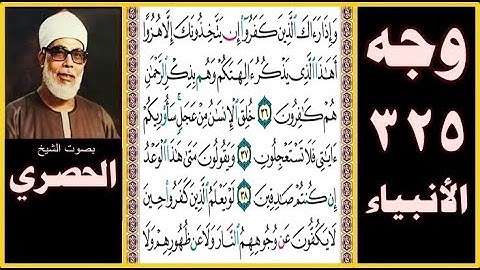 وجه
٣٢٥
الأنبياء
وَإِذَا رَءَاكَ ٱلَّذِينَ كَفَرُوٓا۟ إِن يَتَّخِذُونَكَ إِلَّا هُزُوًا
أَهَٰذَا ٱلَّذِى يَذْكُرُ ءَالِهَتَكُمْ وَهُم بِذِكْرِ ٱلرَّحْمَٰنِ
هُمْ كَٰفِرُونَ ٣٦ خُلِقَ ٱلْإِنسَٰنُ مِنْ عَجَلٍ سَأُو۟رِيكُمْ
ءَايَٰتِى فَلَا تَسْتَعْجِلُونِ ٣٧ وَيَقُولُونَ مَتَىٰ هَٰذَا ٱلْوَعْدُ
إِن كُنتُمْ صَٰدِقِينَ ٣٨ لَوْ يَعْلَمُ ٱلَّذِينَ كَفَرُوا۟ حِينَ
لَا يَكُفُّونَ عَن وُجُوهِهِمُ ٱلنَّارَ وَلَا عَن ظُهُورِهِمْ وَلَا
بصوت الشيخ
الحصري